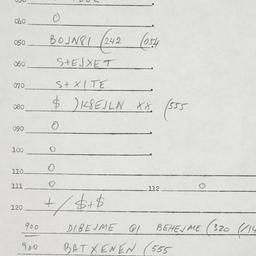 040 0
050 BOJNQI (242 (054
060 S+EJXET
070 S+XITE
080 $ )K8EJLN XX (555
090 0
100 0
110 0
111 0 112 0
120 +/$+$
900 DIBEJME QI BEHEJME (320
900 BATXENEN (555